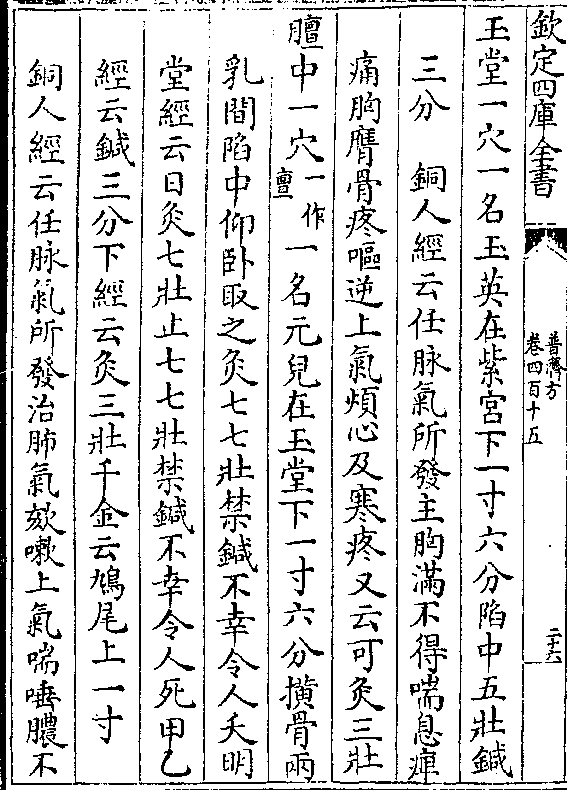 欽定四庫全書
普濟方
卷四百十五
二十六
玉堂一穴一名玉英在紫宮下一寸六分陷中五壯鍼
三分　銅人經云任脉氣所發主胸滿不得喘息痺
痛胸膺骨疼嘔逆上氣煩心及寒疼又云可灸三壯
膻中一穴一作亶一名元兒在玉堂下一寸六分横骨兩
乳間陷中仰卧取之灸七七壯禁鍼不幸令人夭明
堂經云日灸七壯止七七壯禁鍼不幸令人死甲乙
經云鍼三分下經云灸三壯千金云鳩尾上一寸
銅人經云任脉氣所發治肺氣欬嗽上氣喘唾膿不